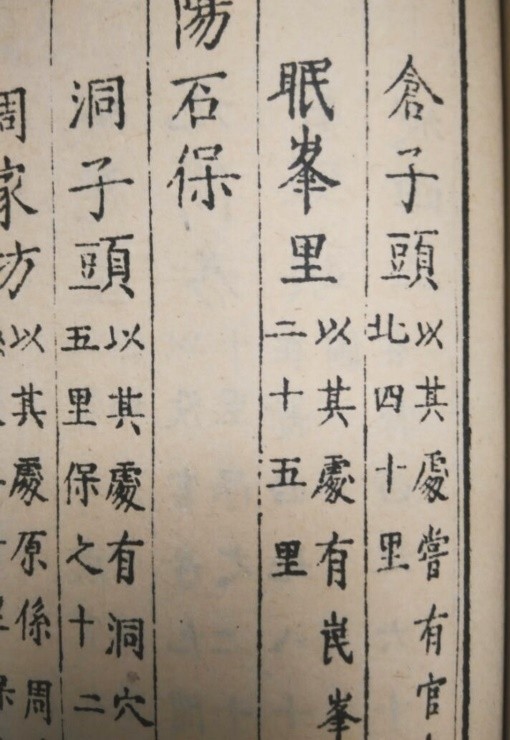 倉子頭
以其處嘗有官
北四十里
眠峯里
以其處有峯
二十五里
陽石保
洞子頭
以其處有洞穴
五里保之十二
周家坊
以其處原係周